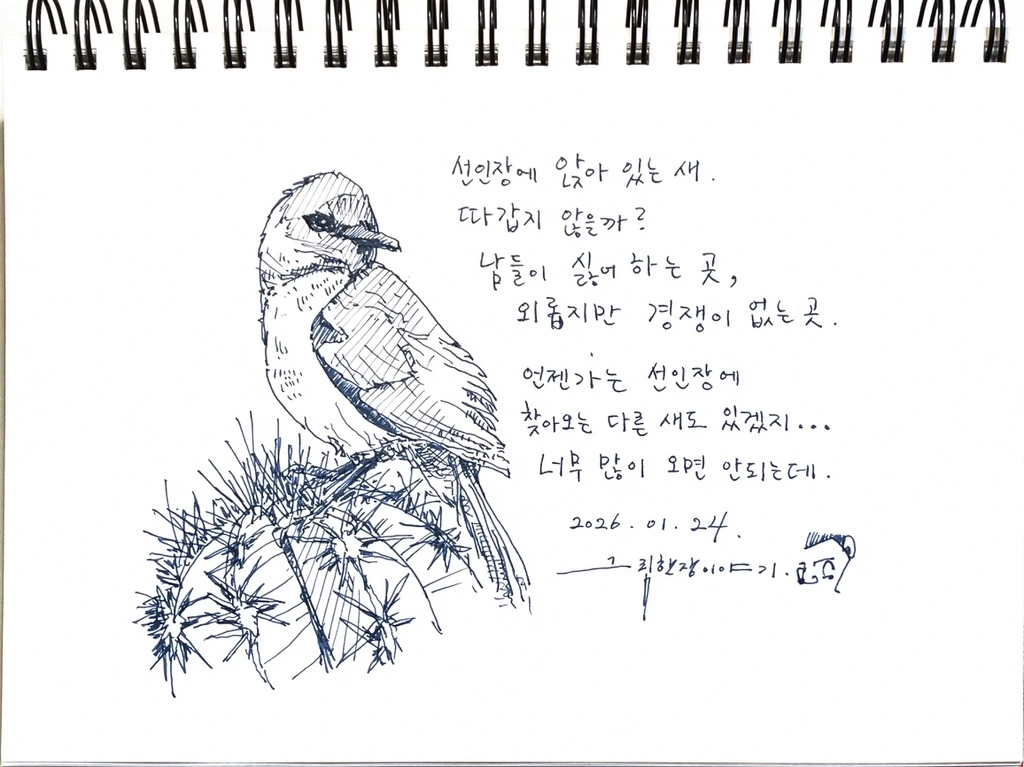 선인장에 앉아 있는 새.
따갑지 않을까?
남들이 싫어 하는 곳,
외롭지만 경쟁이 없는 곳.
언젠가는 선인장에
찾아오는 다른 새도 있겠지...
너무 많이 오면 안되는데.
2026.01.24.
그림한장이야기.